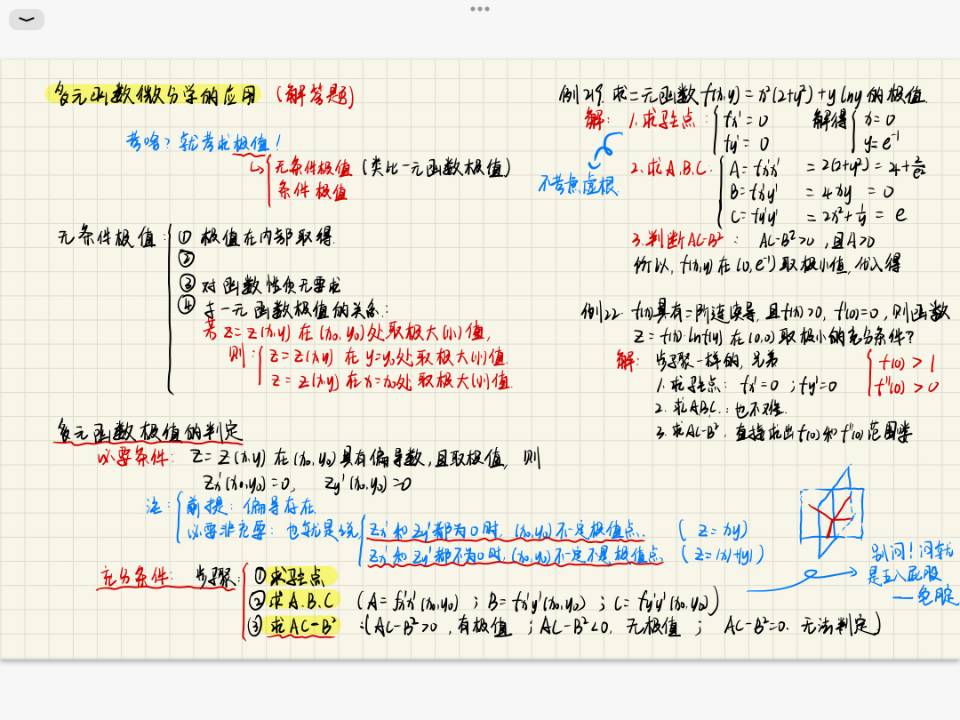 多元函数微分学的应用 (解答题)
考啥? 就考求极值!
↳ 无条件极值 (类比一元函数极值)
条件极值
无条件极值: ① 极值在内部取得.
②
③ 对函数性质无要求
④ 与一元函数极值的关系:
若 z = z(x,y) 在 (x₀, y₀) 处取极大(小)值,
则: z = z(x,y) 在 y=y₀处取极大(小)值
z = z(x,y) 在 x=x₀处取极大(小)值.
多元函数极值的判定
必要条件: z = z(x,y) 在 (x₀, y₀) 具有偏导数, 且取极值, 则
Zx'(x₀,y₀)=0, Zy'(x₀,y₀)=0
注: 前提: 偏导存在
必要非充要: 也就是说 Zx' 和 Zy' 都为0时, (x₀,y₀) 不一定极值点. ( Z = xy)
Zx' 和 Zy' 都不为0时, (x₀,y₀) 不一定不是极值点. ( Z = |x|+|y|)
充分条件: 步骤: ① 求驻点
② 求 A.B.C (A = fx'x'(x₀,y₀) ; B = fx'y'(x₀,y₀) ; C = fy'y'(x₀,y₀))
③ 求 AC-B² :(AC-B²>0, 有极值 ; AC-B²<0, 无极值 ; AC-B²=0. 无法判定)
例219. 求二元函数 f(x,y) = x²(2+y²) + y ln y 的极值.
解: 1. 求驻点: fx' = 0 解得 x=0
fy' = 0 y=e⁻¹
不考虑虚根
2. 求 A.B.C. A = fx'x' = 2(2+y²) = 4+2/e²
B = fx'y' = 4xy = 0
C = fy'y' = 2x²+1/y = e
3. 判断AC-B²: AC-B²>0, 且A>0
所以, f(x,y) 在 (0,e⁻¹) 取极小值, 代入得
例22. f(x)具有二阶连续导, 且f(x)>0, f'(0)=0, 则函数
Z = f(x)·lnf(y) 在 (0,0) 取极小的充分条件?
解: 步骤一样的, 兄弟 f(0) > 1
1. 求驻点: fx'=0 ; fy'=0 f''(0) > 0
2. 求ABC.: 也不难.
3. 求AC-B². 直接求出 f(0) 和 f''(0) 范围
别问! 问就
是